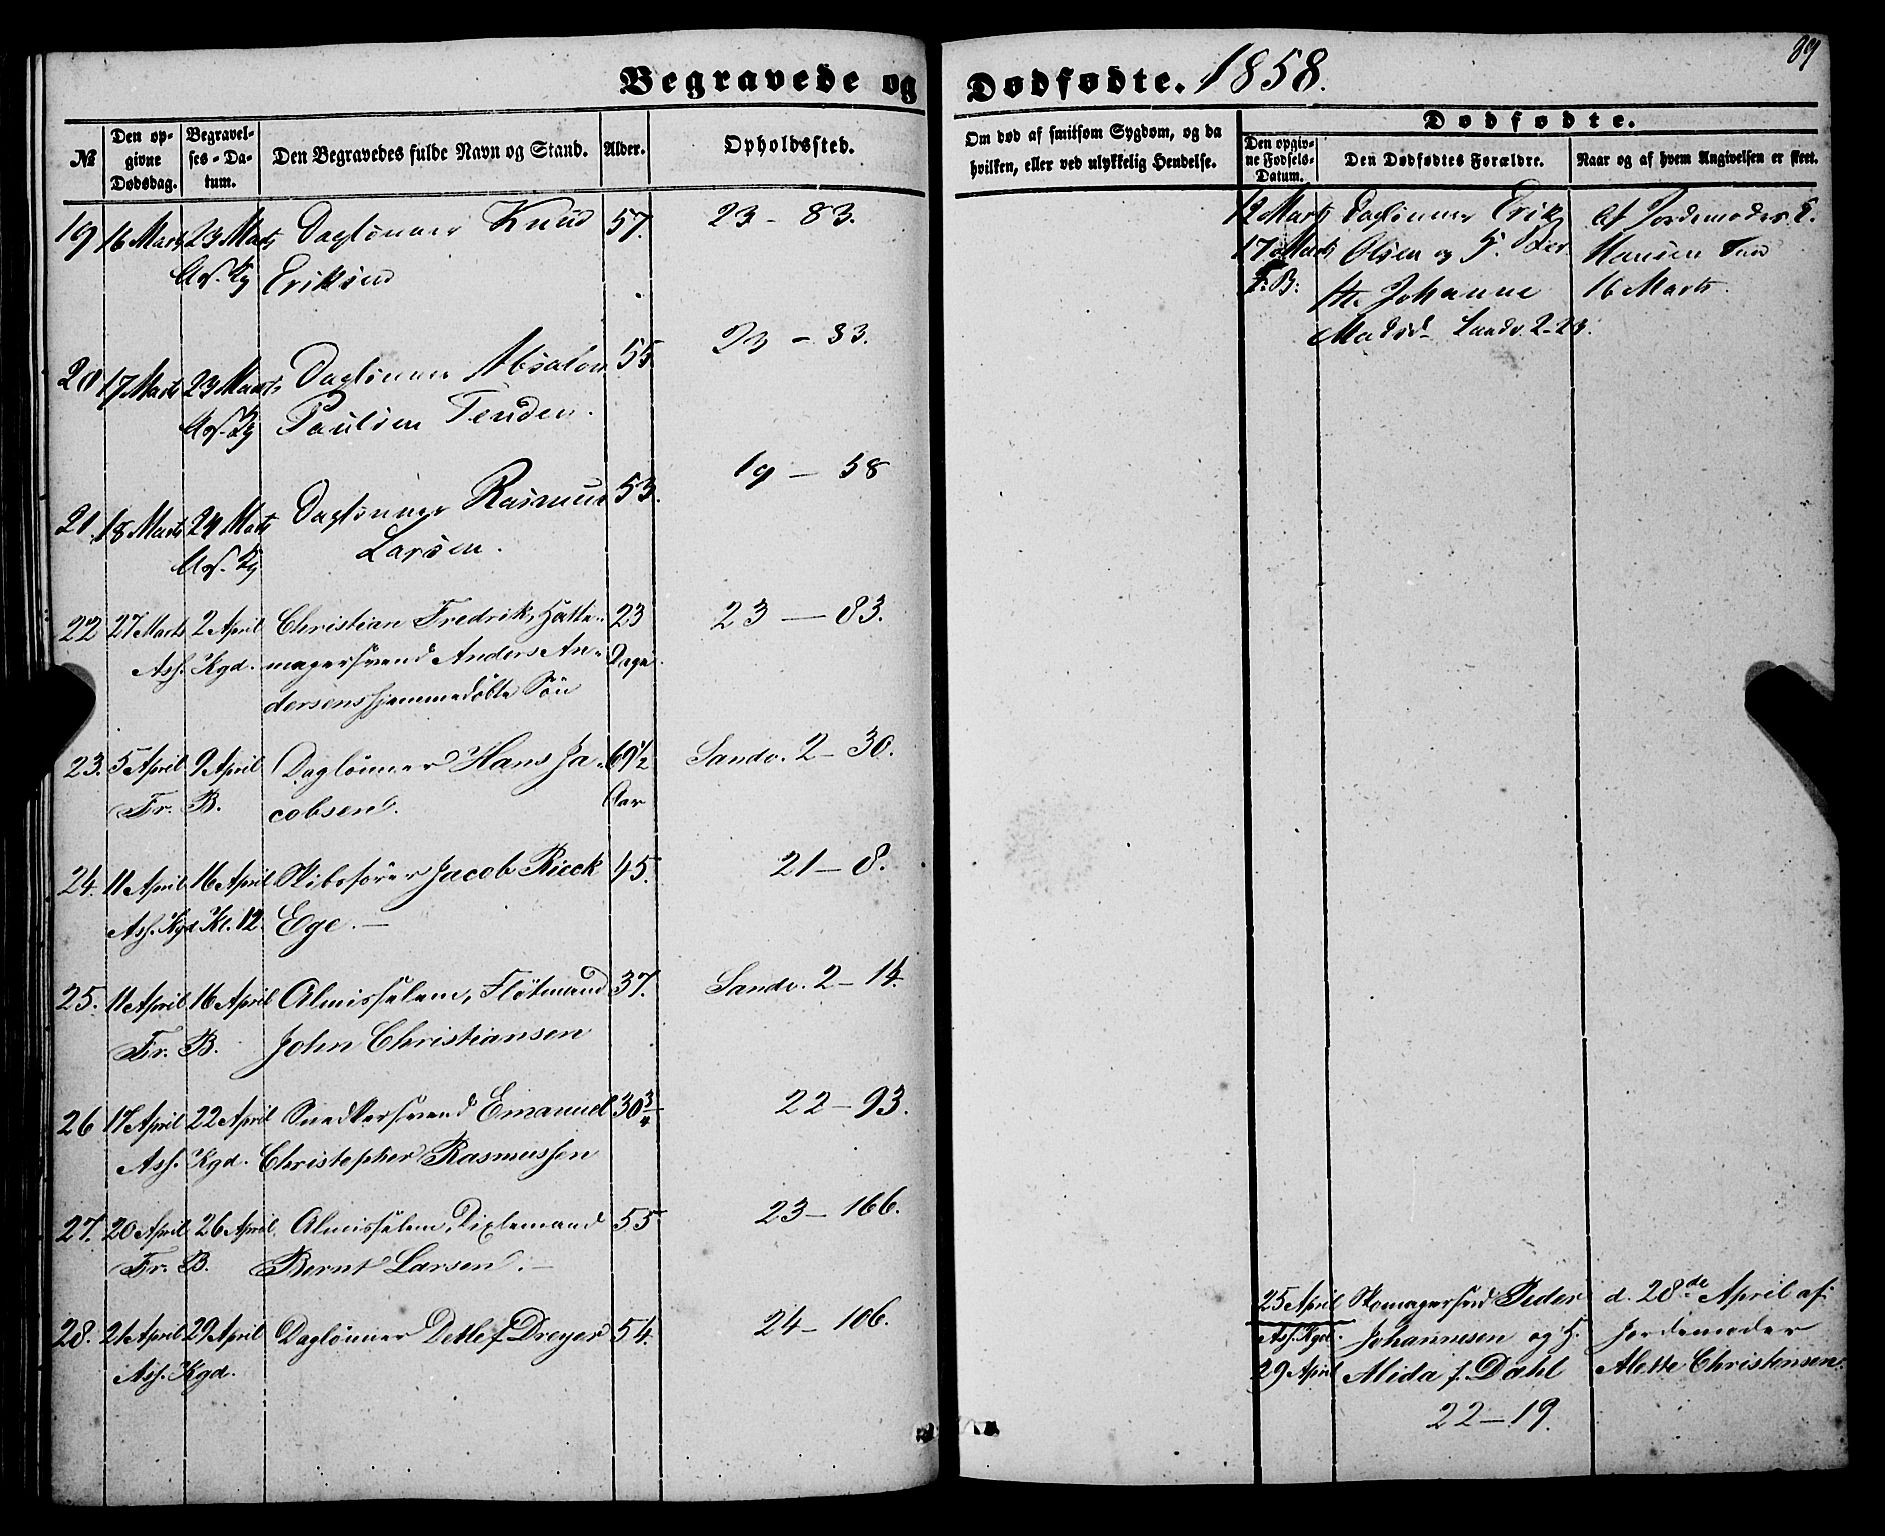 Begravede og Dødfødte. 1858.
89
№
Den opgivne Dødsdag.
Begravelses-Datum.
Den Begravedes fulde Navn og Stand.
Alder.
Opholdssted.
Om død af smitsom Sygdom, og da hvilken, eller ved ulykkelig Hendelse.
Dødfødte.
Den opgivne Fødsels-Datum.
Den Dødfødtes Forældre.
Naar og af hvem Angivelsen er skeet.
19 16 Marts 23 Marts Daglønner Knud 57. 23 - 83.
Ass. Kg Eriksen
20 17 Marts 23 Marts Daglønner Absalon 55 23 - 83.
Ass. Kg Paulsen Tenden.
21. 18 Marts 24 Marts Daglønner Rasmus 53. 19 - 58
Ass. Kg Larsen.
22 27 Marts 2 April Christian Fredrik, Hatte- 23 23 - 83.
Ass. Kgd. magersvend Anders An- Dage
dersens hjemmedøbte Søn
23. 5 April 9 April Daglønner Hans Ja- 69 1/2 Sandv. 2 - 30.
Fr. B. cobsen. Aar
24. 11 April 16 April Skibsfører Jacob Rieck 45. 21 - 8.
Ass. Kgd Kl. 12. Ege. -
25. 11 April 16 April Almisselem, Fløtmand 37. Sandv. 2 - 14.
Fr. B. John Christiansen
26 17 April 22 April Snedkersvend Emanuel 30 3/4 22 - 93.
Ass. Kgd. Christopher Rasmussen
27. 20 April 26 April. Almisselem, Dixlemand 55 23 - 166.
Fr. B. Bernt Larsen. -
28. 21 April 29 April Daglønner Detlef Dreyer 54. 24 - 106.
Ass. Kgd.
12 Marts Daglønner Erik Af Jordemoder
17 Marts Olsen og H. Hansen
F. B: Johanne 16 Marts.
Madsd Sandv. 2-23.
25 April Skomagersvd Peder d. 28de April af
Ass. Kgd. Johannesen og H. Jordemoder
29 April Alida f. Dahl Alette Christensen.
22 - 19.